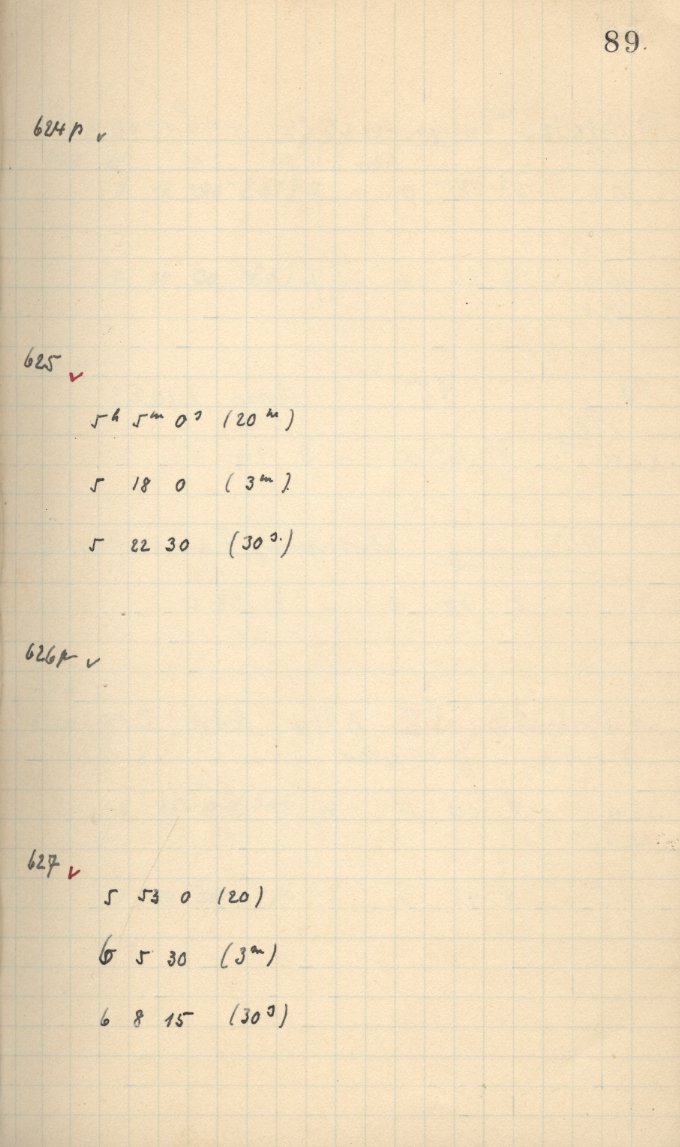 89.
624p ✓
625 ✓
5ʰ 5ᵐ 0ˢ (20ᵐ)
5 18 0 (3ᵐ)
5 22 30 (30ˢ)
626p ✓
627 ✓
5 53 0 (20)
6 5 30 (3ᵐ)
6 8 15 (30ˢ)